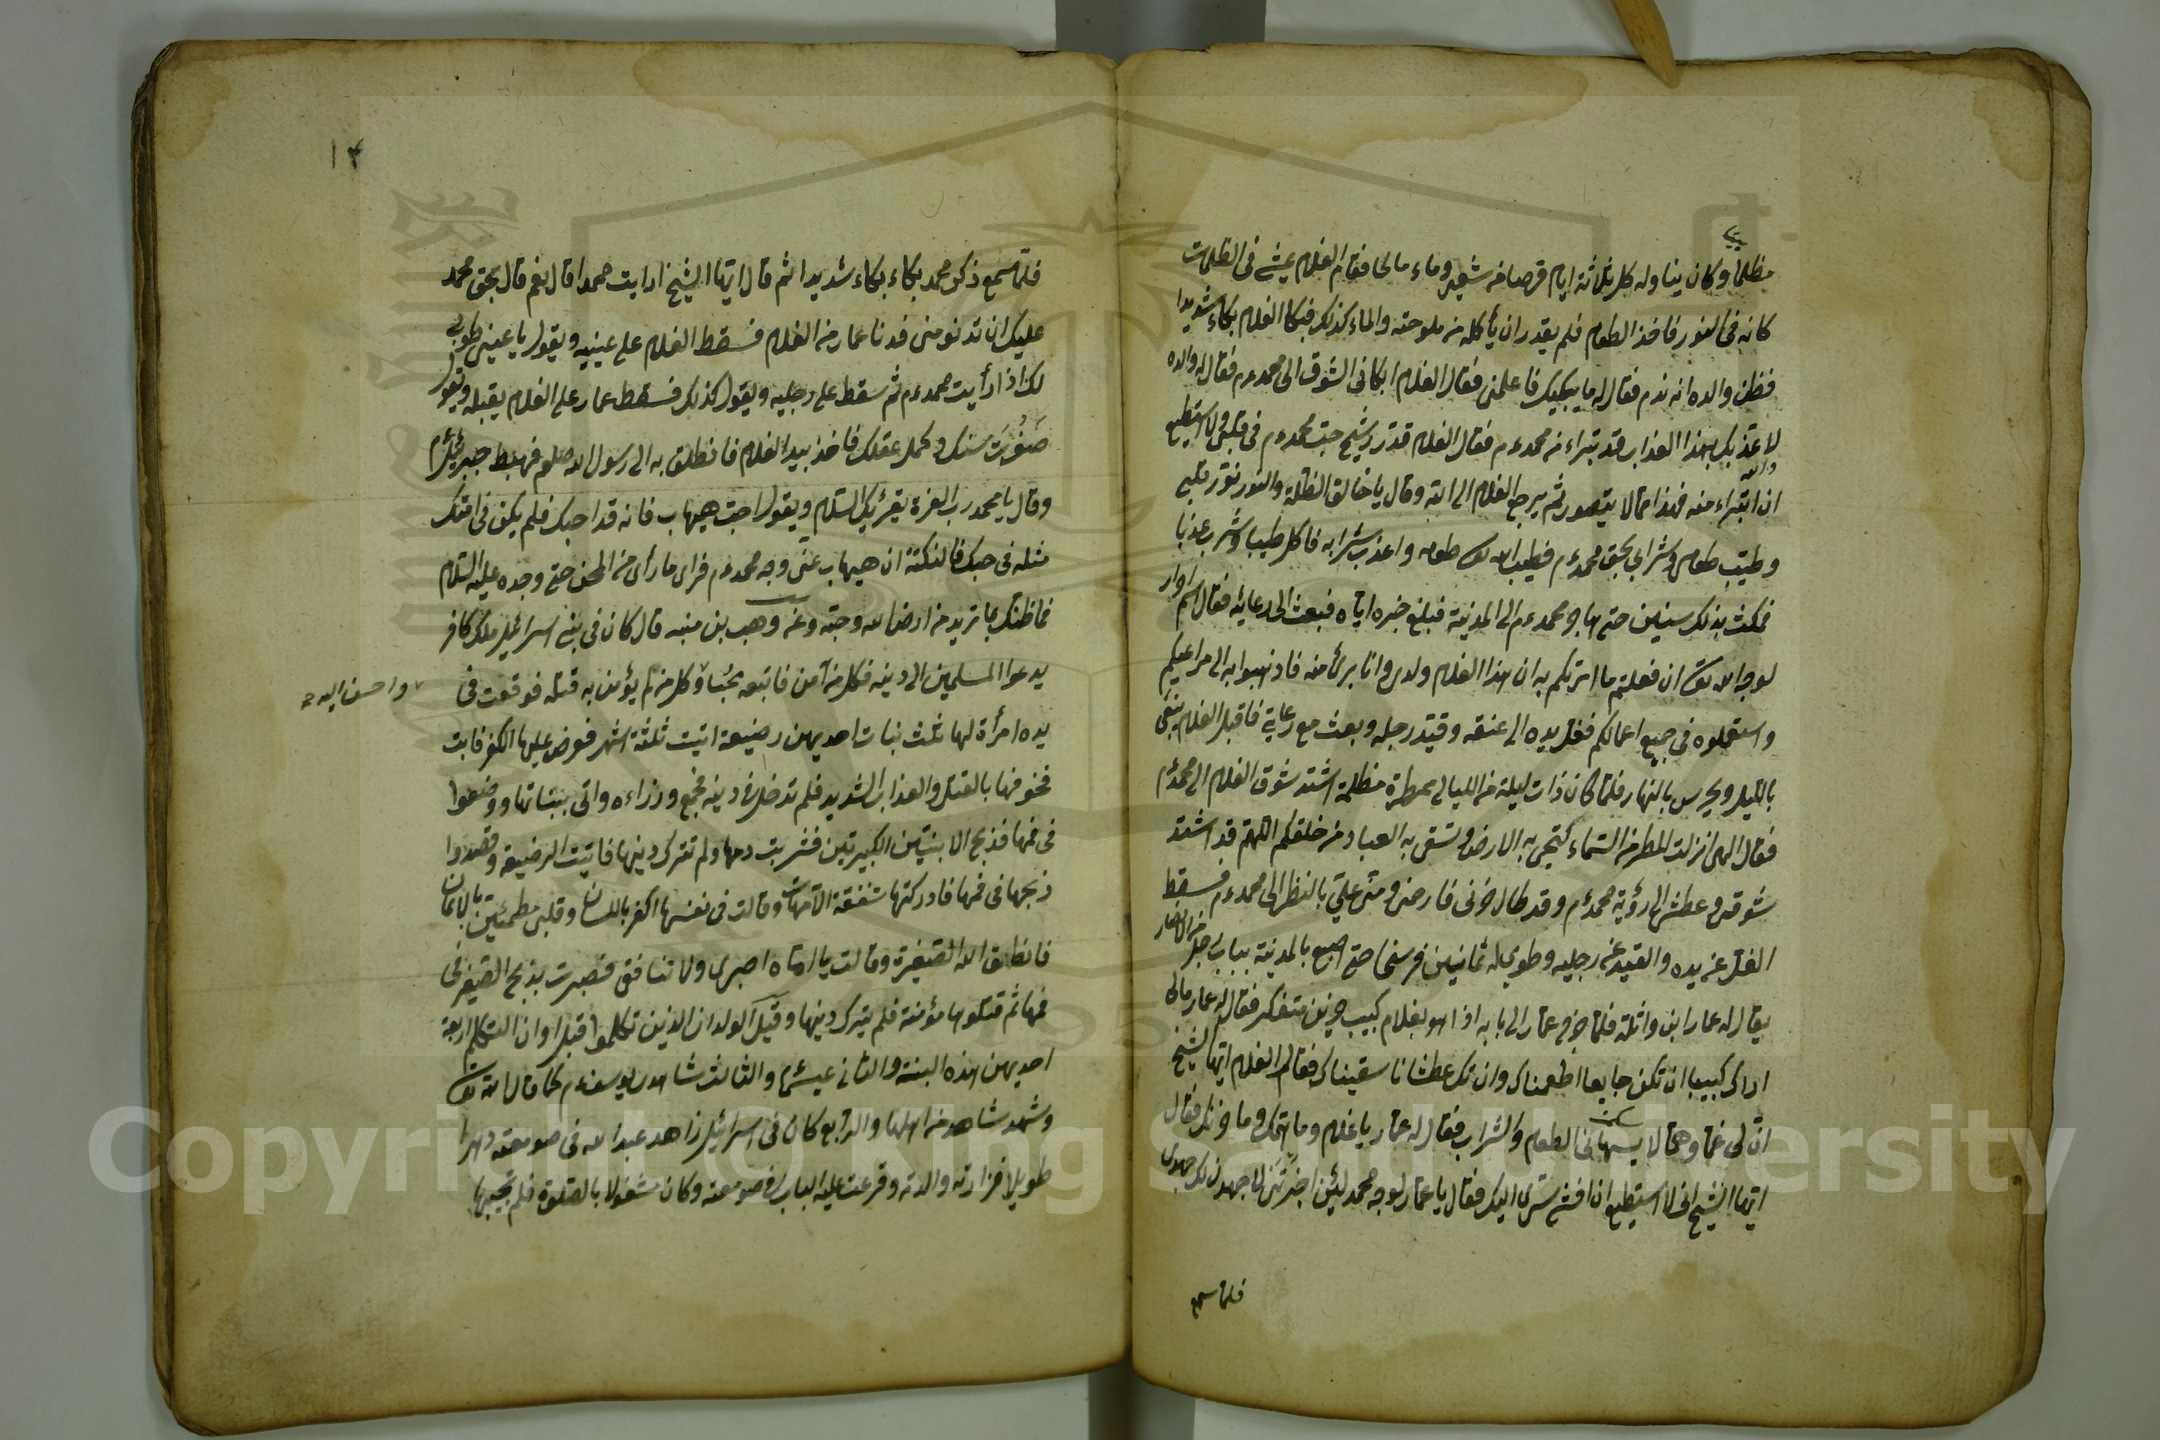 مظلما وكان يناوله كل ثلاثة ايام قرصا من شعير وماء مالحا فقام الغلام يمشي في الظلمات
كانه في النور فاخذ الطعام فلم يقدر ان يأكله من ملوحته والماء كذلك فبكا الغلام بكاء شديدا
فظن والده انه ندم فقال له ما يبكيك فاعلمني فقال الغلام ابكاني الشوق الى محمد عم فقال له والده
لا عذبك بهذا العذاب قد تبراء من محمد عم فقال الغلام قد حب محمد عم في قلبي ولا استطيع
والله
ان ابتراء منه فهذا مما لا يتصور ثم يرجع الغلام الى الله وقال يا خالق الظلمة والنور نور قلبي
وطيب طعامي وشرابي بحق محمد عم فطيب الله تعا طعامه واعذب شرابه فاكل طيبا وشرب عذبا
فمكث بذلك سنين حتى هاجر محمد عم الى المدينة فبلغ خبره اياه فبعث الى رعائه فقال
لوجه الله تعا ان فعلتم ما امرتكم به ان هذا الغلام ولدي وانا برئ منه فاذهبوا به الى مراعيكم
واستعملوه في جميع اعمالكم فغل يده الى عنقه وقيد رجله وبعث مع رعاية فاقبل الغلام
بالليل ويحرس بالنهار فلما كان ذات ليلة من الليالي ممطرة مظلمة اشتد شوق الغلام الى محمد عم
فقال الهي انزلت المطر من السماء لتحيى به الارض وتسقى به العباد من خلقكم اللهم قد اشتد
شوقي وعطشي الى رؤية محمد عم وقد طال حزني فارحمني ومن علي بالنظر الى محمد عم فسقط
الغل عن يده والقيد عن رجليه وطوى له ثمانين فرسخا حتى اصبح بالمدينة بباب رجل من الانصار
يقال له عمار ابن واثلة فلما خرج عمار الى بابه اذا هو بغلام كئيب حزين متفكر فقال له عمار مالي
اراك كئيبا ان تكن جايعا اطعمناك وان تك عطشانا سقيناك فقال الغلام ايها الشيخ
ان لي غما وهما لا الطعام والشراب فقال له عمار يا غلام وما همك وما حزنك فقال
ايها الشيخ اني لا استطيع ان افشي سري اليك فقال يا عمار لوجه محمد لئن اخبرتني لاجهدن لك جهدي
فلما سمع
١٣
فلما سمع ذكر محمد بكاء بكاء شديدا ثم قال ايها الشيخ ارايت محمدا قال نعم قال بحق محمد
عليك ان تدنو مني فدنا عمار من الغلام فسقط الغلام على عينيه ويقول يا عيني طوبى
لك اذ رأيت محمد عم ثم سقط على رجليه ويقول كذلك فسقط عمار على الغلام يقبله ويقول
صغرت سنك وكمل عقلك فاخذ بيد الغلام فانطلق به الى رسول الله صلعم فهبط جبرئيل عم
وقال يا محمد رب العزة يقرئك السلام ويقول احب هيهاب فانه قد احبك فلم يكن في امتك
مثله في حبك فالنكتة ان هيهاب عنى وجه محمد عم فراى ما رأى من المحن حتى وجده عليه السلام
فما ظنك بما تريد من ارض الله وجنه وعن وهب بن منبه قال كان في بني اسرائيل ملك كافر
يدعوا المسلمين الى دينه فكل من آمن فاتبعه نجا وكل من لم يؤمن به قتله فوقعت في
واحسن اليه
يده امرأة لها ثلث بنات احديهن رضيعة اتيت ثلثة اشهر فعرض عليها الكفر فابت
فخوفها بالقتل والعذاب الشديد فلم تدخل في دينه فجمع وزراءه واتى ببناتها ووضعوا
في فمها فذبح الابنتين الكبيرتين فشربت دمها ولم تترك دينها فاتيت الرضيعة وقصدوا
ذبحها في فمها فادركتها شفقة الامهات وقالت في نفسها اكفر باللسان وقلبي مطمئن بالايمان
فانطق الله الصغيرة وقالت يا اماه اصبري ولا تنافقي فصبرت بذبح الصغير في
فمها ثم قتلوها مؤمنة فلم يترك دينها وقيل الولدان الذين تكلموا قبل اوان التكلم اربعة
احديهن هذه البنت والثاني عيسى عم والثالث شاهد يوسف عم كما قال الله تعا
وشهد شاهد من اهلها والرابع كان في اسرائيل زاهد عبد الله في صومعته دهرا
طويلا فزارته والدته وقرعت عليه الباب في صومعته وكان مشغولا بالصلوة فلم يجيبها